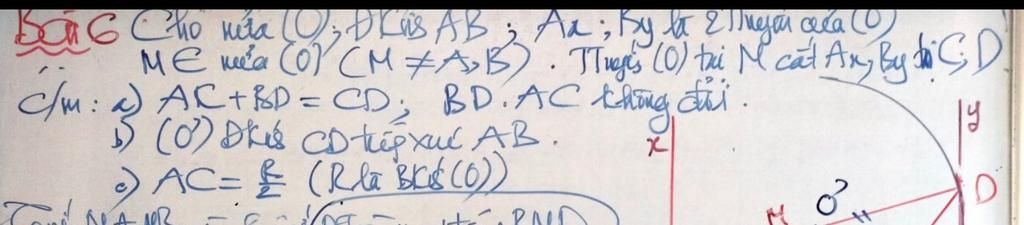 Bài 6 Cho nửa (O); ĐKính AB; Ax; By là 2 TTuyến của (O)
M ∈ nửa (O) (M ≠ A, B). TTuyến (O) tại M cắt Ax, By tại C; D
C/m: a) AC + BD = CD; BD . AC không đổi.
b) (O') ĐKính CD tiếp xúc AB.
c) AC = R/2 (R là BKính (O))
x
y
O'
D
M